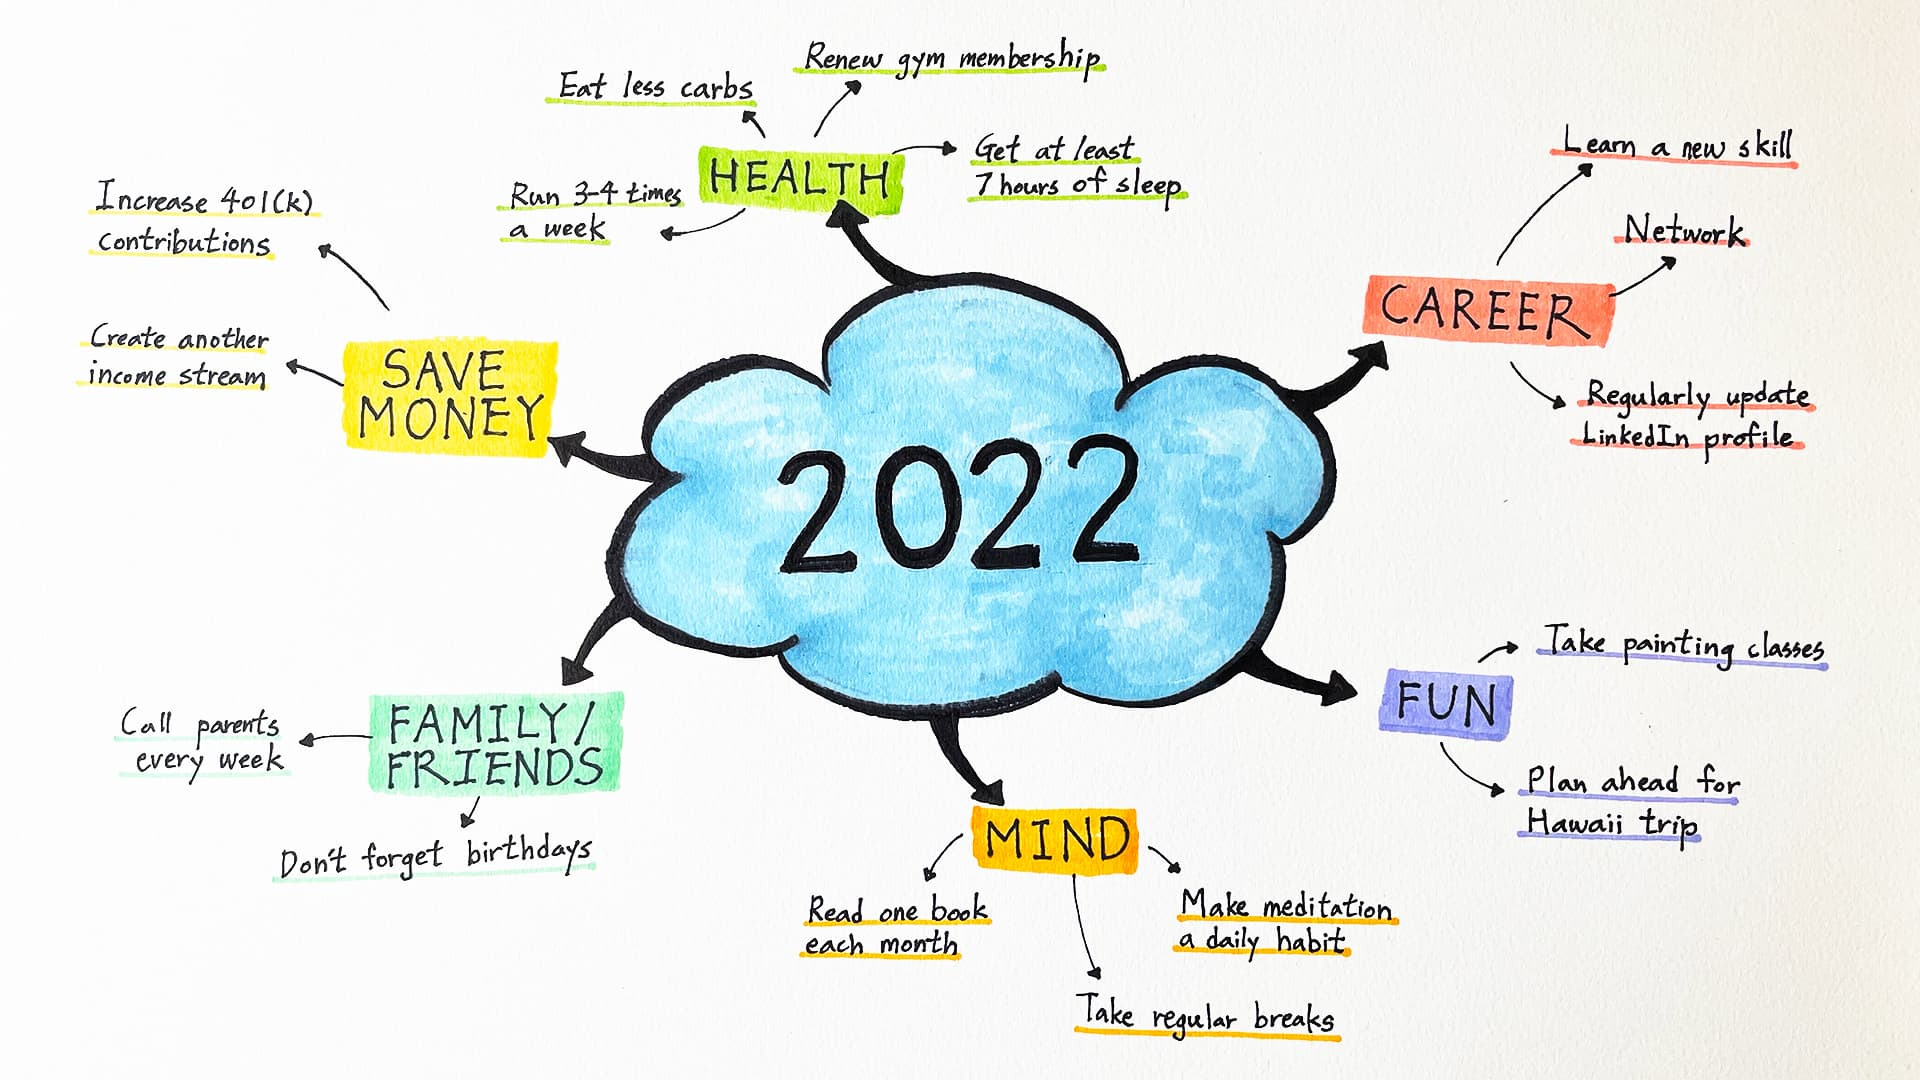 Renew gym membership
Eat less carbs
HEALTH
Get at least
7 hours of sleep
Run 3-4 times
a week
Increase 401(k)
contributions
Create another
income stream
SAVE
MONEY
Learn a new skill
Network
CAREER
Regularly update
LinkedIn profile
2022
Take painting classes
FUN
Plan ahead for
Hawaii trip
FAMILY/
FRIENDS
Call parents
every week
Don't forget birthdays
MIND
Read one book
each month
Make meditation
a daily habit
Take regular breaks